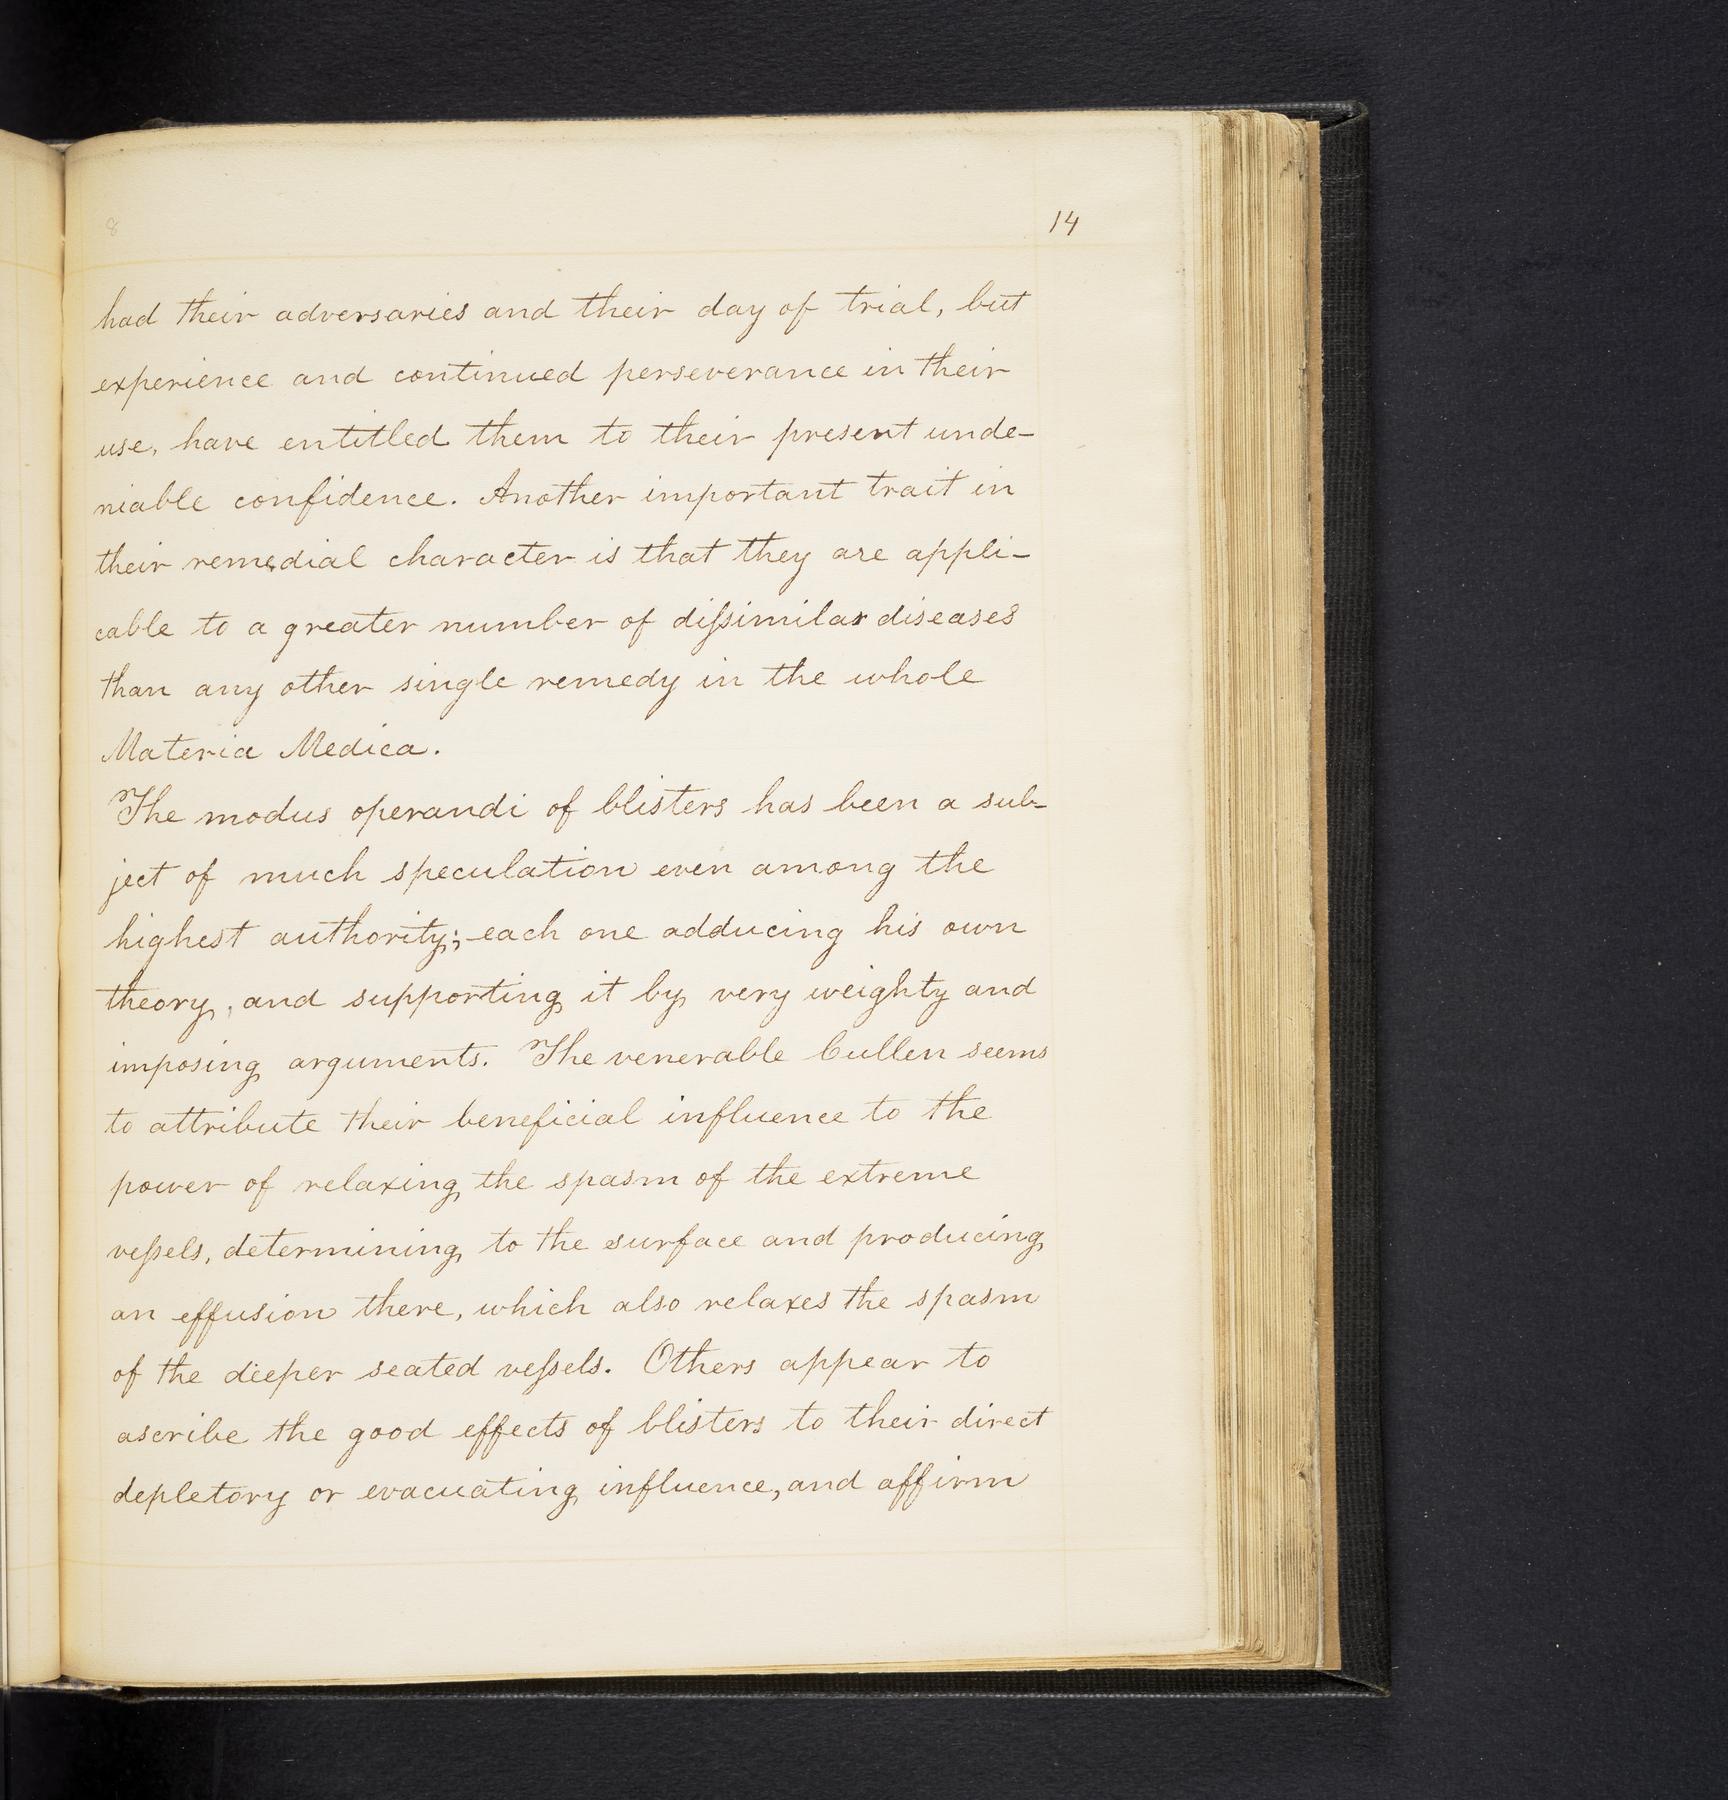 8
14
had their adversaries and their day of trial, but
experience and continued perseverance in their
use, have entitled them to their present unde-
niable confidence. Another important trait in
their remedial character is that they are appli-
cable to a greater number of diſsimilar diseases
than any other single remedy in the whole
Materia Medica.
The modus operandi of blisters has been a sub-
ject of much speculation even among the
highest authority; each one adducing his own
theory, and supporting it by very weighty and
imposing arguments. The venerable Cullen seems
to attribute their beneficial influence to the
power of relaxing the spasm of the extreme
veſsels, determining to the surface and producing
an effusion there, which also relaxes the spasm
of the deeper seated veſsels. Others appear to
ascribe the good effects of blisters to their direct
depletory or evacuating influence, and affirm